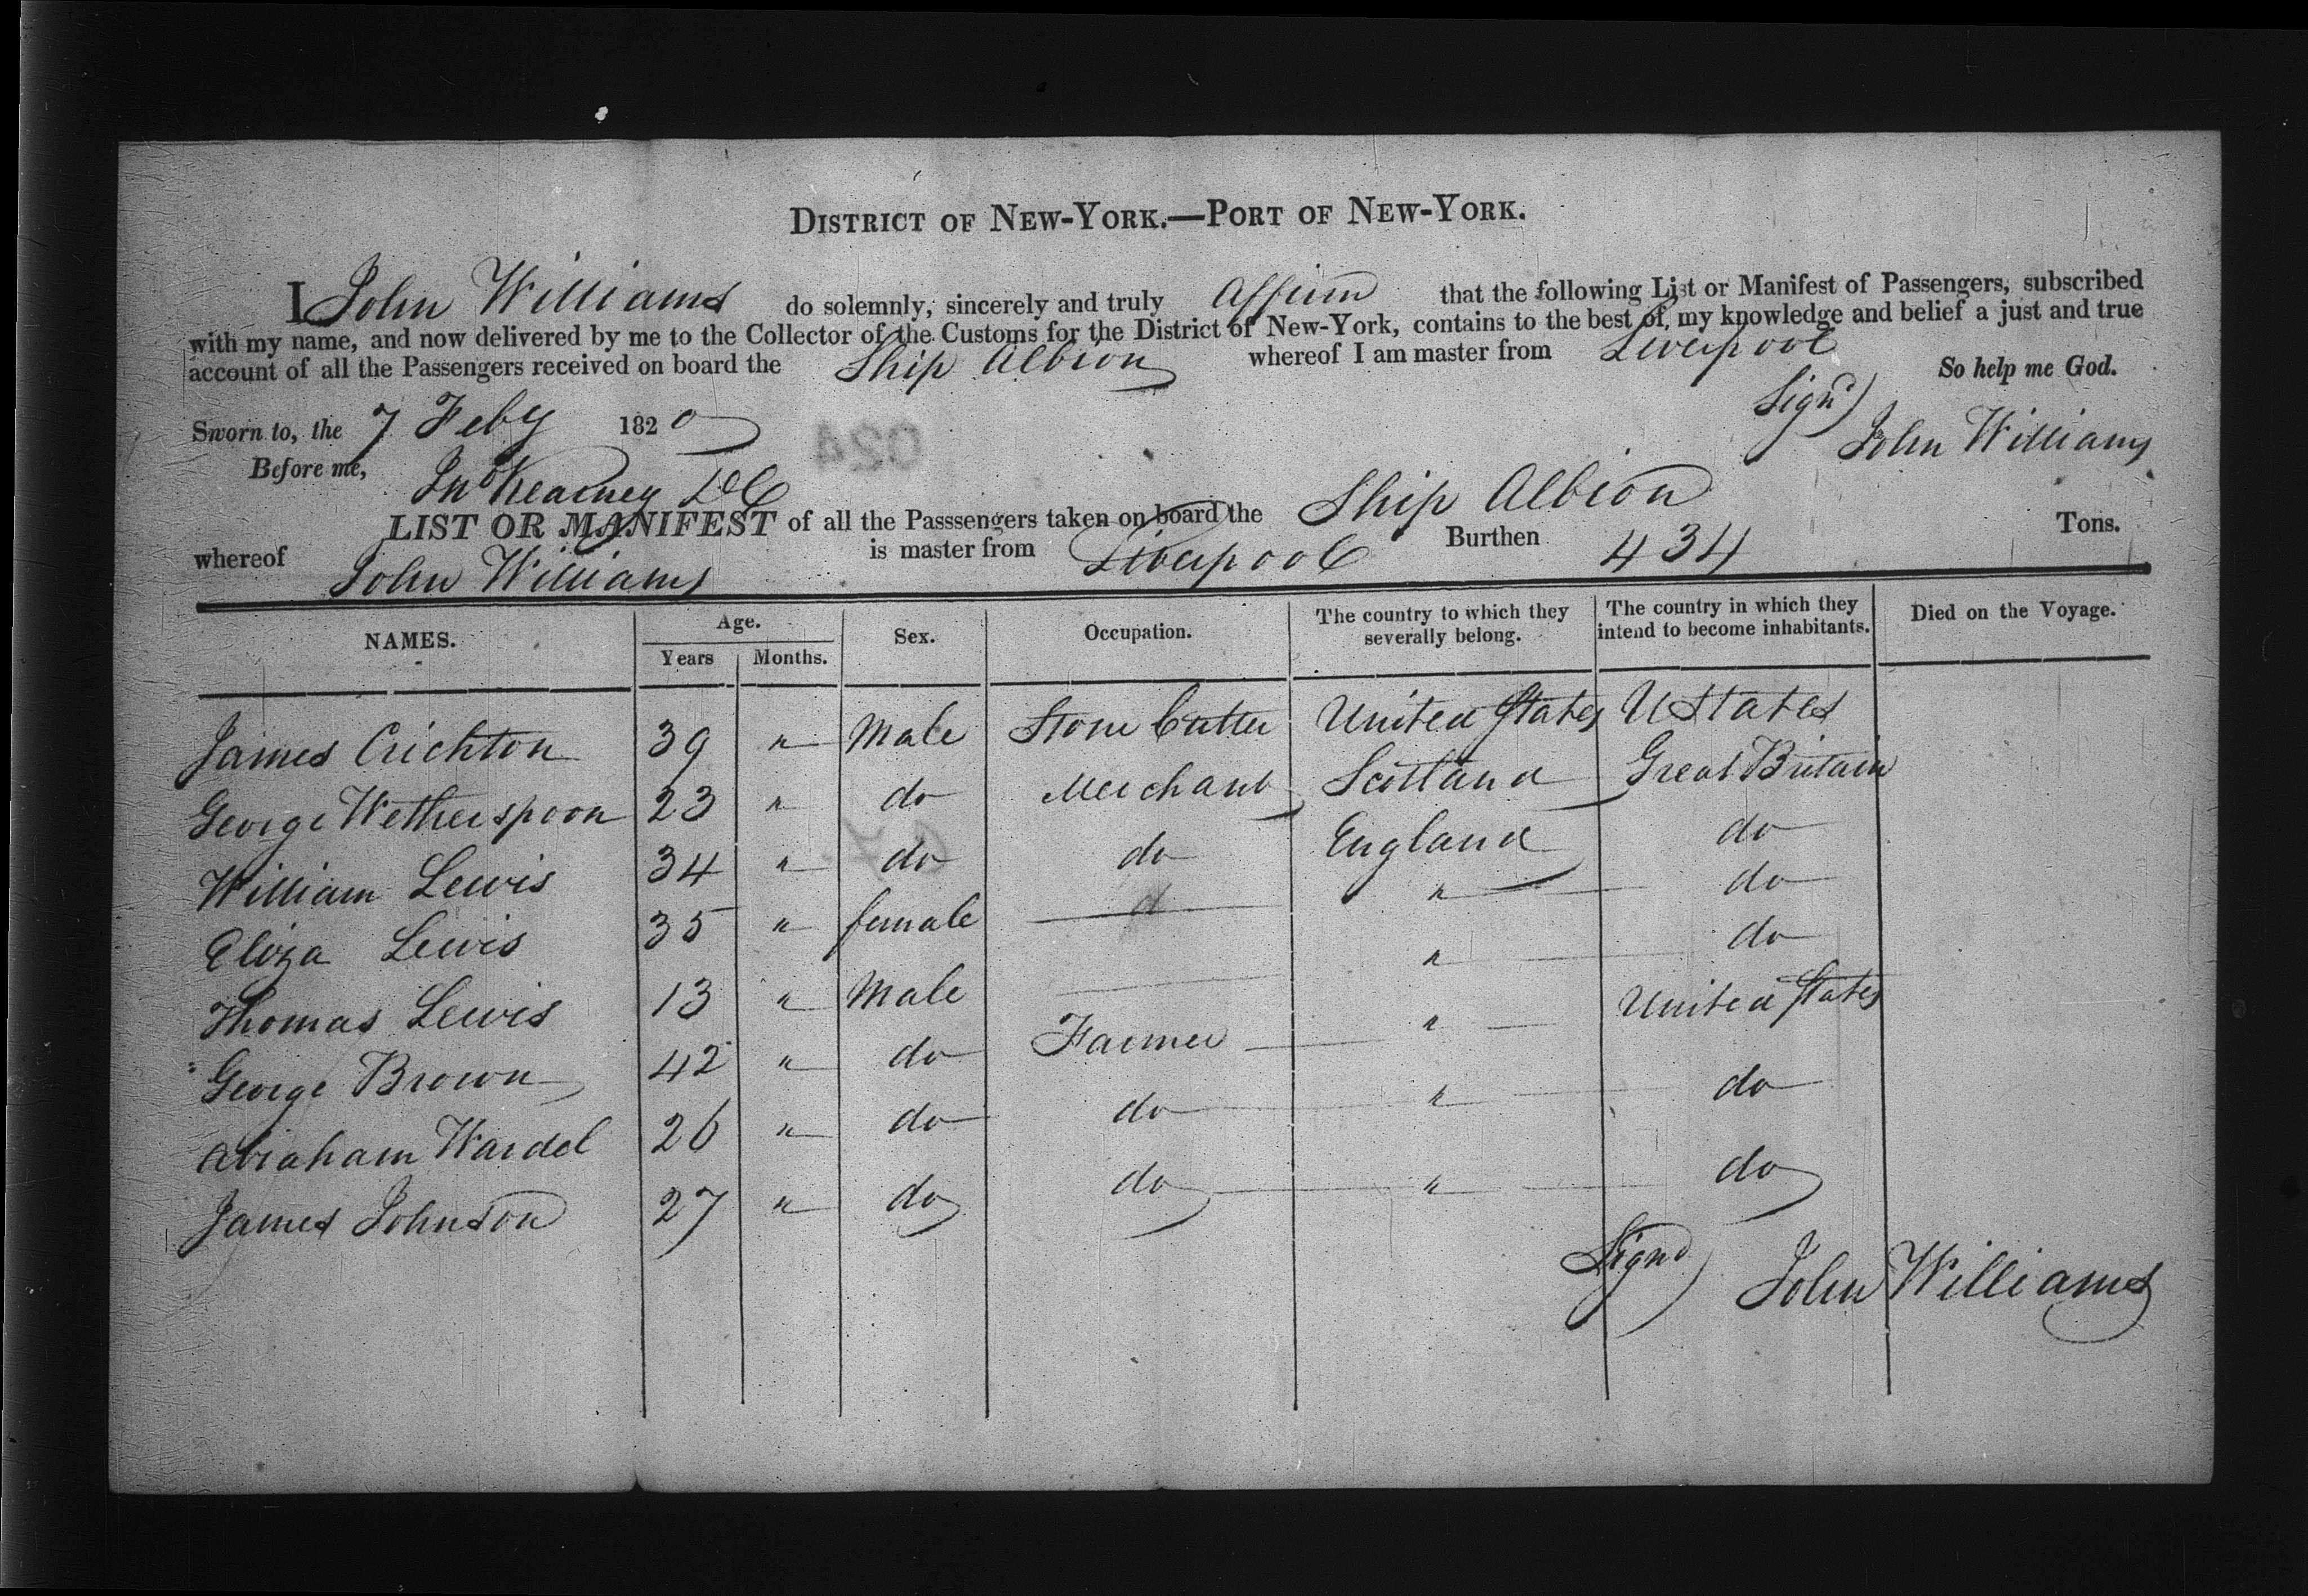 DISTRICT OF NEW-YORK.—PORT OF NEW-YORK.
I John Williams do solemnly, sincerely and truly Affirm that the following List or Manifest of Passengers, subscribed
with my name, and now delivered by me to the Collector of the Customs for the District of New-York, contains to the best of my knowledge and belief a just and true
account of all the Passengers received on board the Ship Albion whereof I am master from Liverpool So help me God.
Sworn to, the 7 Feby 1820 Signd) John Williams
Before me, Jno Kearney DC
LIST OR MANIFEST of all the Passsengers taken on board the Ship Albion
whereof John Williams is master from Liverpool Burthen 434 Tons.
NAMES. Age. Years Months. Sex. Occupation. The country to which they severally belong. The country in which they intend to become inhabitants. Died on the Voyage.
James Crichton 39 " Male Stone Cutter United States UStates
George Wetherspoon 23 " do Merchant Scotland Great Britain
William Lewis 34 " do do England do
Eliza Lewis 35 " female — " do
Thomas Lewis 13 " Male — " do
George Brown 42 " do Farmer " United States
Abraham Wardel 26 " do do " do
James Johnson 27 " do do " do
Signd) John Williams